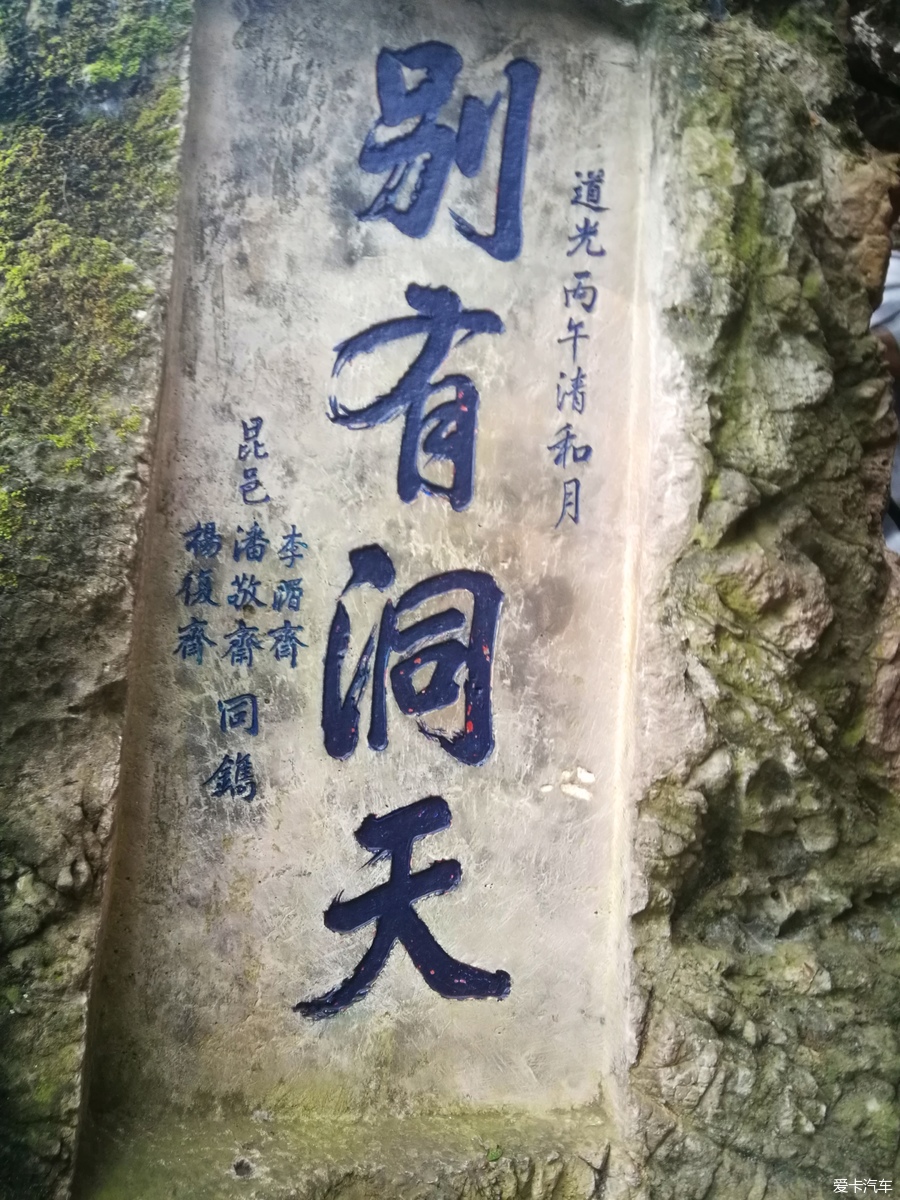 道光丙午清和月
别有洞天
昆邑
李湄齋
潘敬齋
楊復齋
同鐫
爱卡汽车